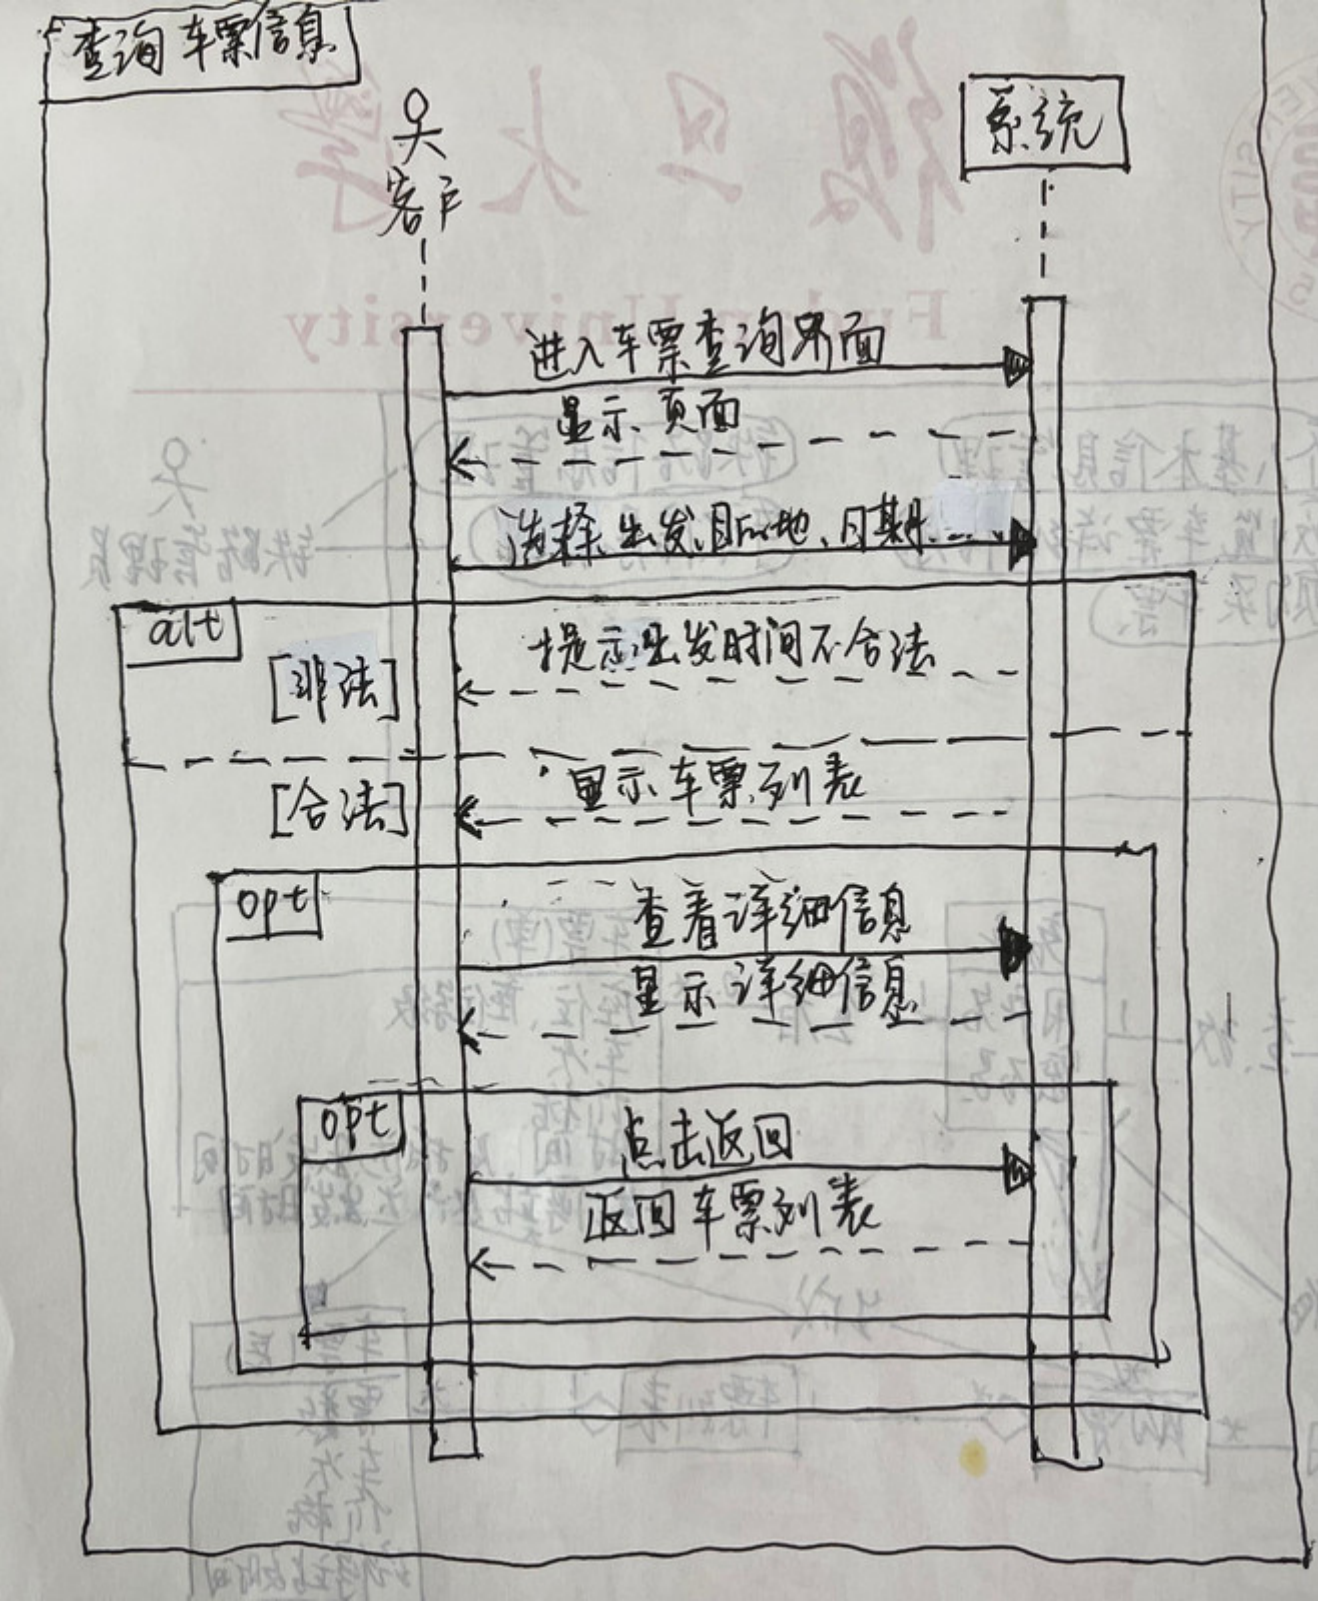 查询车票信息
系统
客户
进入车票查询界面
显示页面
选择出发、目的地、日期
alt
提示出发时间不合法
[非法]
显示车票列表
[合法]
opt
查看详细信息
显示详细信息
opt
点击返回
返回车票列表